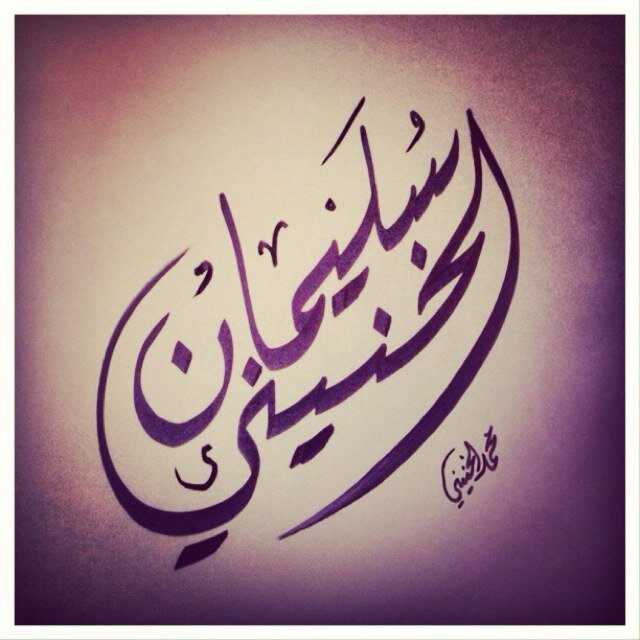 سُلَيمانْ
الخنيني
محمد الخنيني